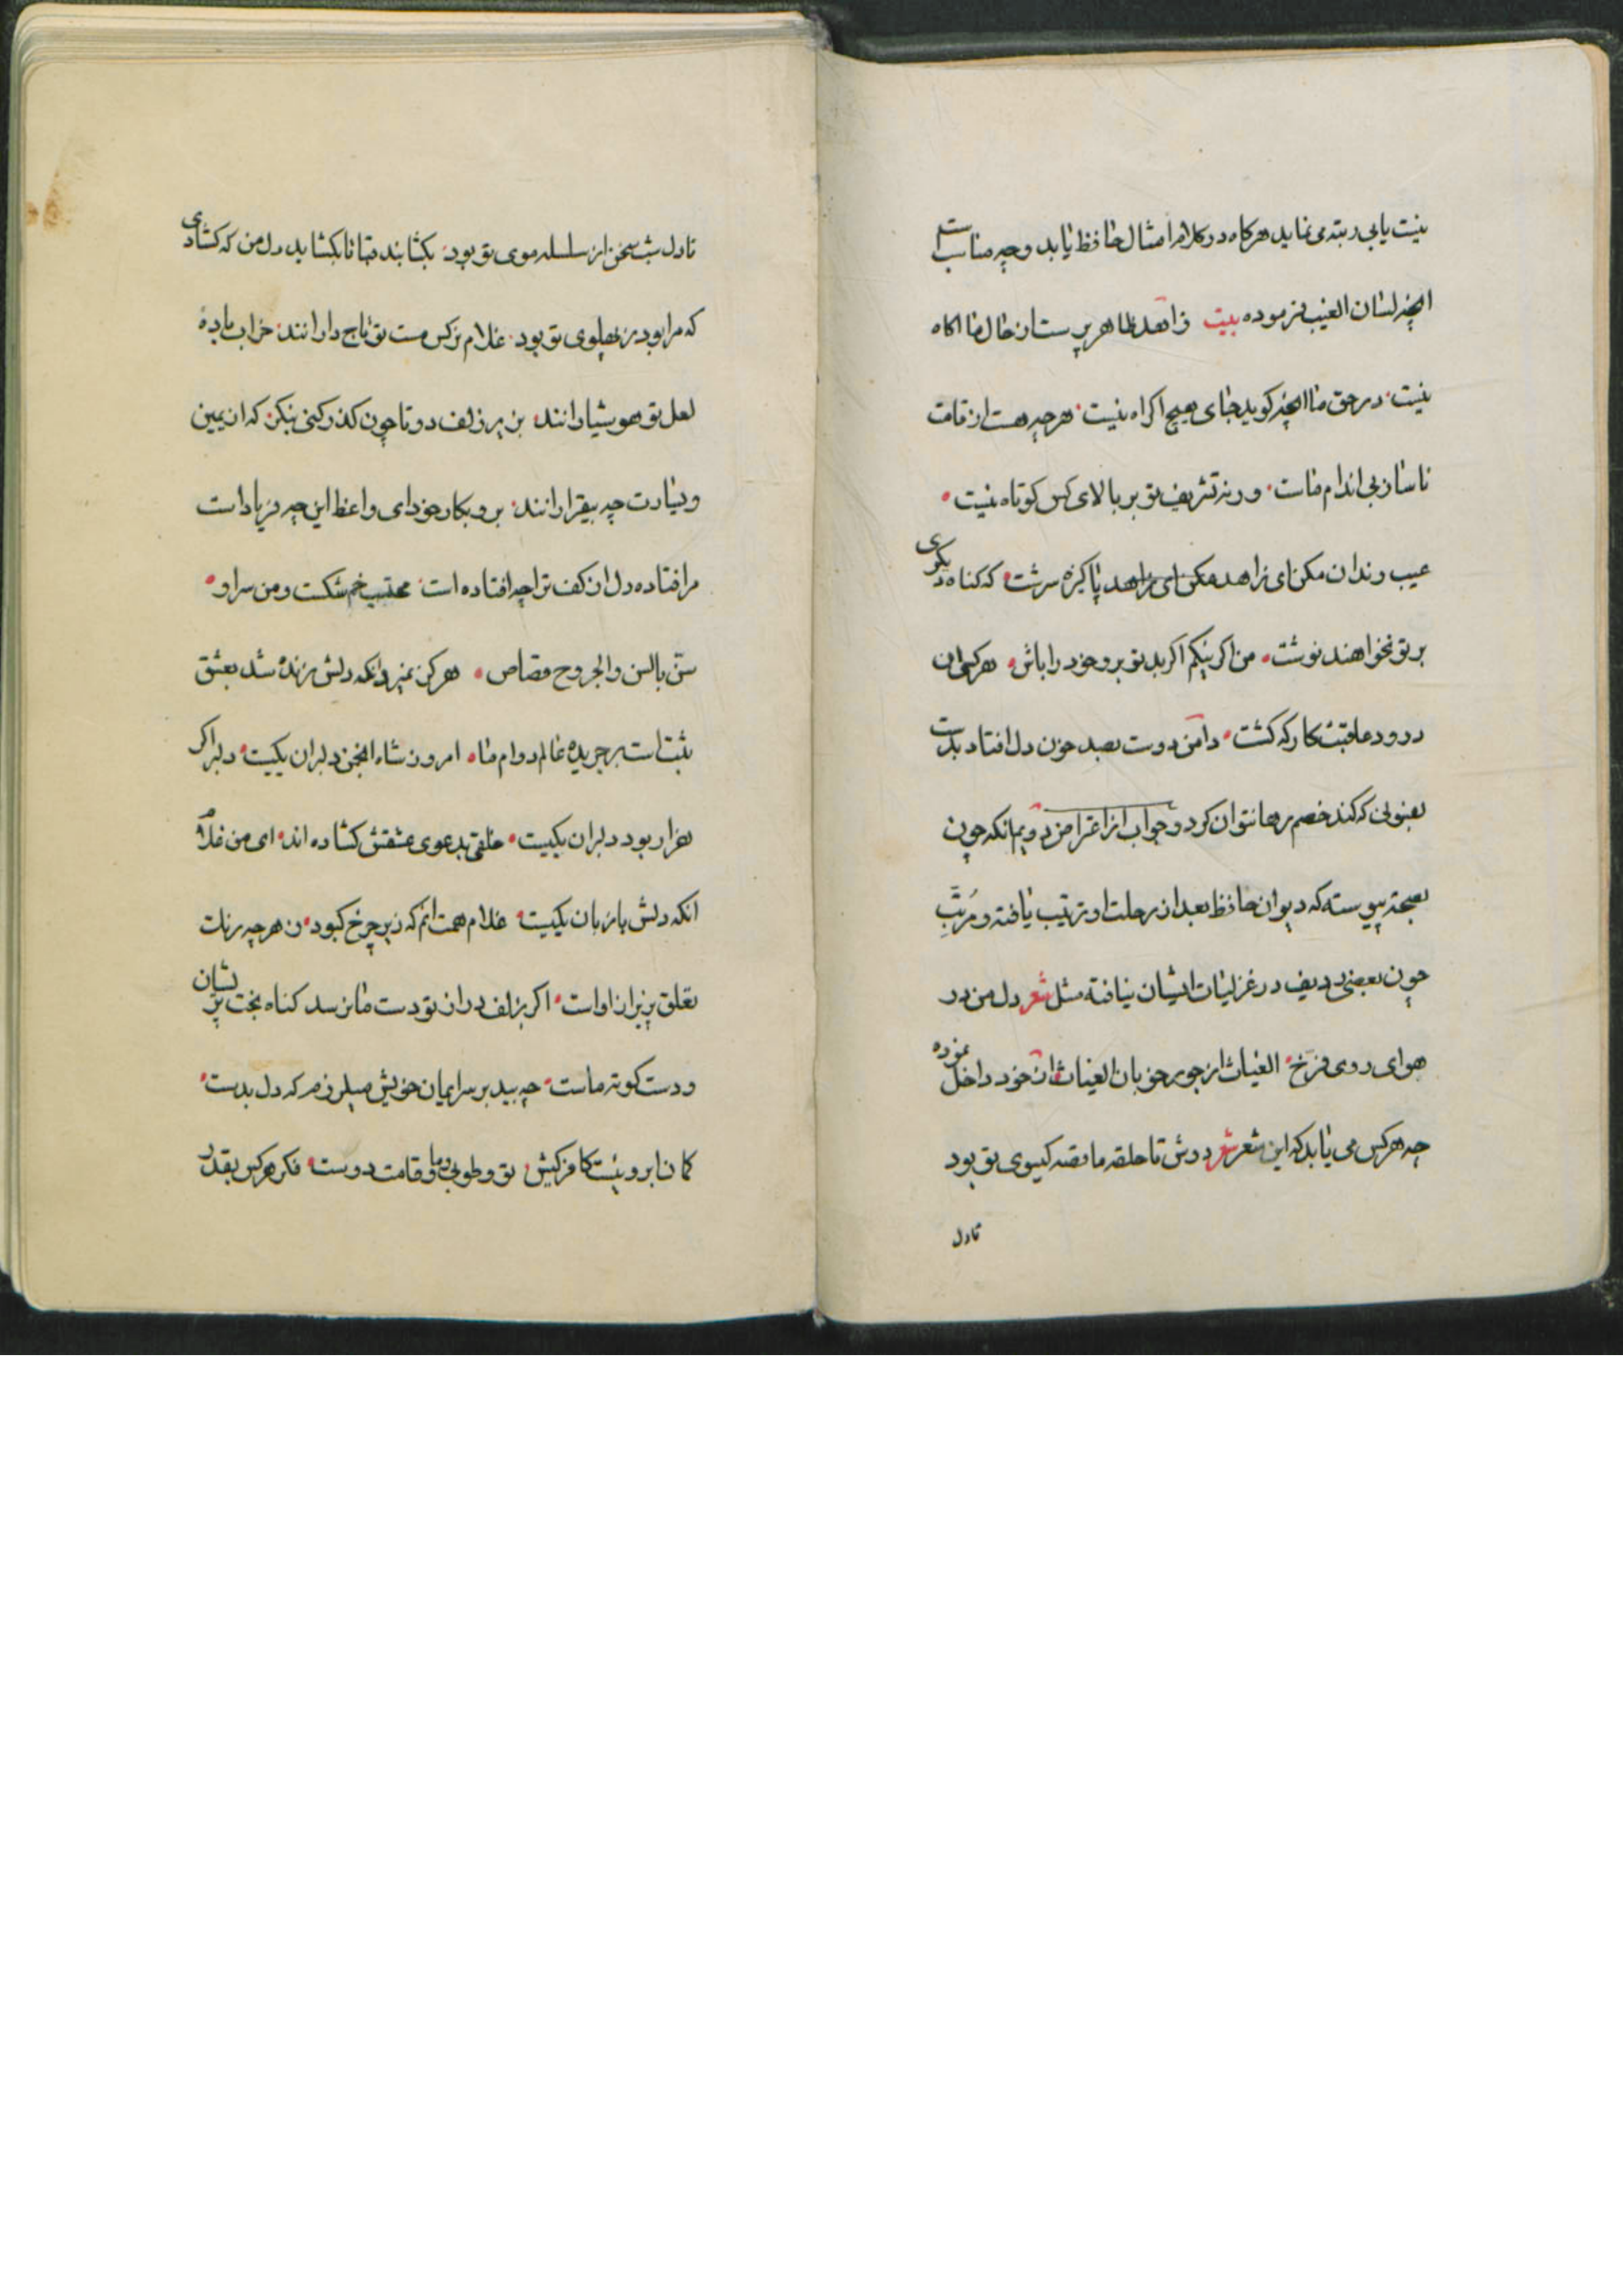 نیست یابی رتبدی نماید هرکاه در کلام امثال حافظ یابد وجه مناسبت
انچه لسان الغیب فرموده بیت زاهد ظاهر پرست از حال ما اکاه
نیست در حق ما انچه کوید جای هیچ اکراه نیست هرچه هست از قامت
ناساز بی اندام ماست ورنه تشریف تو بر بالای کس کوتاه نیست
عیب رندان مکن ای زاهد مکن ای زاهد پاکیزه سرشت که کناه دیکری
بر تو نخواهند نوشت من اکر نیکم اکر بد تو برو خود را باش هرکسی ان
درود عاقبت کار که کشت دامن دوست بصد خون دل افتاد بدست
بفسونی که کند خصم رها نتوان کرد و جواب از اعتراض دویم انکه چون
بصحة پیوسته که دیوان حافظ بعد از رحلت او ترتیب یافته و مرتب
چون بعضی ردیف در غزلیات ایشان نیافته مثل شعر دل من در
هوای روی فرخ الغیاث از جور خوبان الغیاث از خود داخل نموده
چه هرکس می یابد که این شعر شعر دوش تا حلقه ما قصه کیسوی تو بود
تا دل
تا دل شب سخن از سلسله موی تو بود بکشا بند قبا تا بکشاید دل من که کشادی
که مرا بود ز پهلوی تو بود غلام نرکس مست تو تاج دارانند خراب باده
لعل تو هوشیارانند بزیر زلف دوتا چون کذر کنی بنکر که از یمین
و یسارت چه بیقرارانند برو بکار خود ای واعظ این چه فریاد است
مرا فتاده دل از کف ترا چه افتاده است محتسب خم شکست و من سر او
سن بالسن والجروح قصاص هرکز نمیرد انکه دلش زنده شد بعشق
ثبت است بر جریده عالم دوام ما امروز شاه انجمن دلبران یکیست دلبر اکر
هزار بود دلبر ان یکیست خلقی بدعوی عشقش کشاده اند ای من غلام
انکه دلش با زبان یکیست غلام همت انم که زیر چرخ کبود ز هرچه رنک
تعلق پذیرد ازاد است اکر بزلف دراز تو دست ما نرسد کناه بخت پریشان
و دست کوته ماست چو بید بر سر ایمان خویش میلرزم که دل بدست
کمان ابرویست کافر کیش تو و طوبی و ما و قامت دوست فکر هرکس بقدر